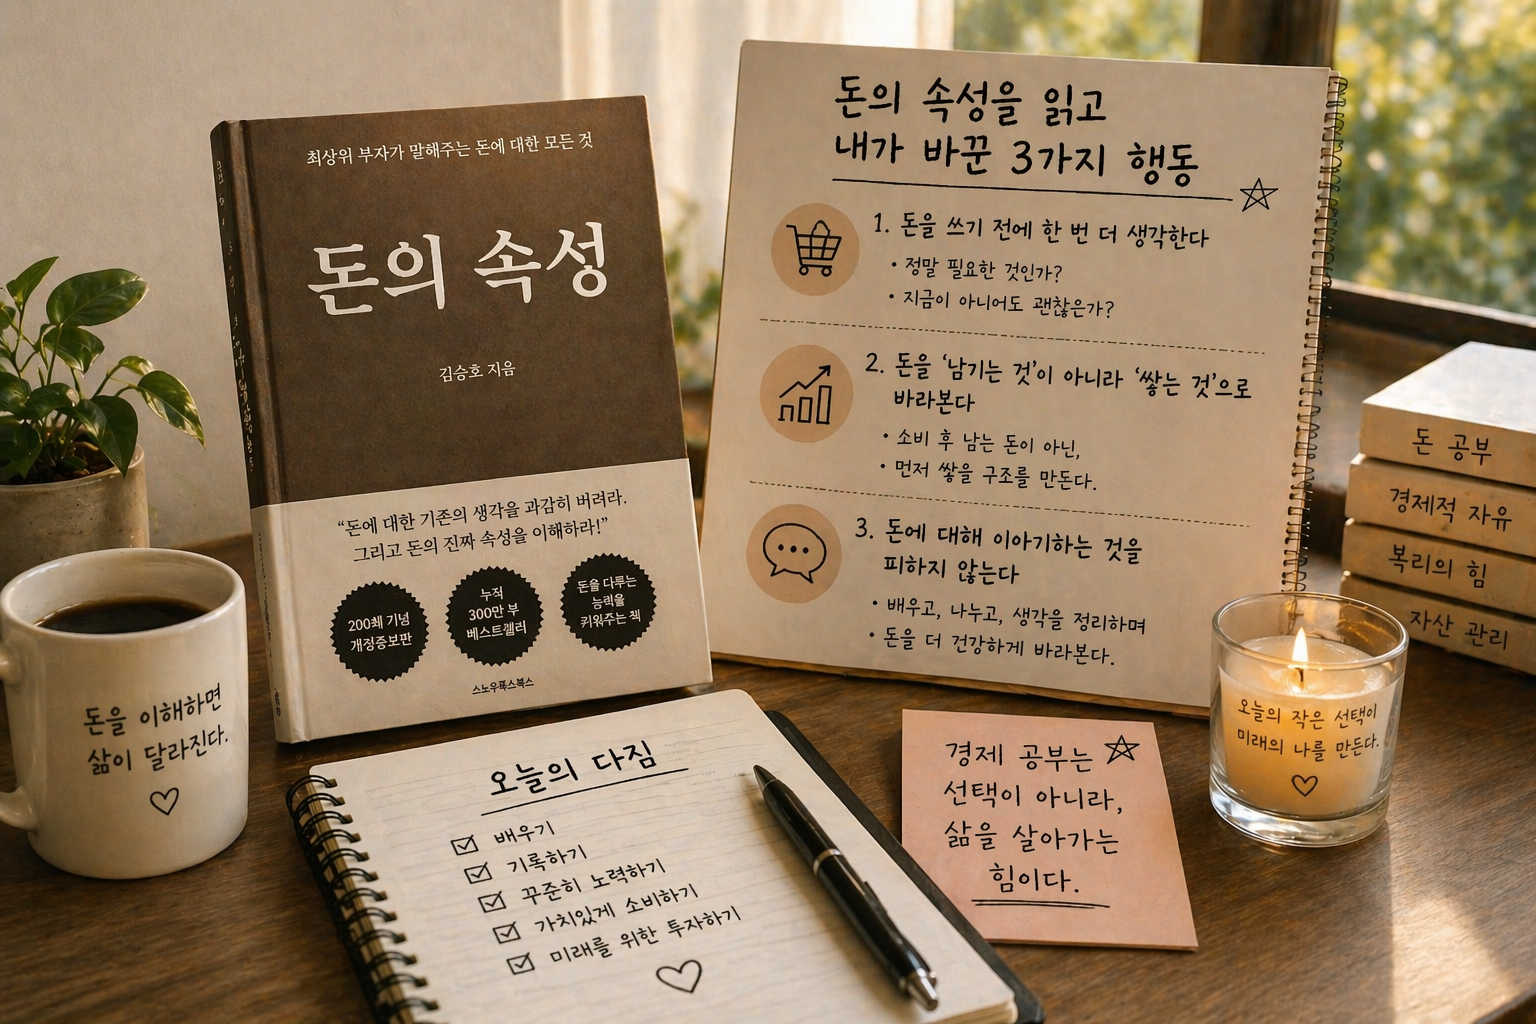 최상위 부자가 말해주는 돈에 대한 모든 것
돈의 속성
김승호 지음
“돈에 대한 기존의 생각을 과감히 버려라.
그리고 돈의 진짜 속성을 이해하라!”
200쇄 기념
개정증보판
누적
300만 부
베스트셀러
돈을 다루는
능력을
키워주는 책
스노우폭스북스
돈의 속성을 읽고
내가 바꾼 3가지 행동
1. 돈을 쓰기 전에 한 번 더 생각한다
• 정말 필요한 것인가?
• 지금이 아니어도 괜찮은가?
2. 돈을 ‘남기는 것’이 아니라 ‘쌓는 것’으로
바라본다
• 소비 후 남는 돈이 아닌,
• 먼저 쌓을 구조를 만든다.
3. 돈에 대해 이야기하는 것을
피하지 않는다
• 배우고, 나누고, 생각을 정리하며
• 돈을 더 건강하게 바라본다.
돈 공부
경제적 자유
복리의 힘
자산 관리
돈을 이해하면
삶이 달라진다.
오늘의 다짐
배우기
기록하기
꾸준히 노력하기
가치있게 소비하기
미래를 위한 투자하기
경제 공부는
선택이 아니라,
삶을 살아가는
힘이다.
오늘의 작은 선택이
미래의 나를 만든다.